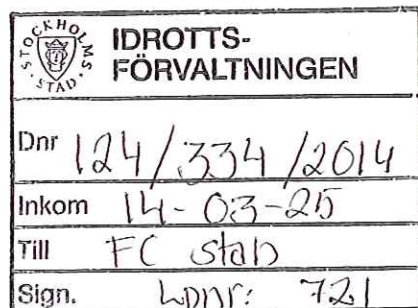 STOCKHOLMS
STAD
IDROTTS-
FÖRVALTNINGEN
Dnr 124/334/2014
Inkom 14-03-25
Till FC stab
Sign. Lpnr: 721